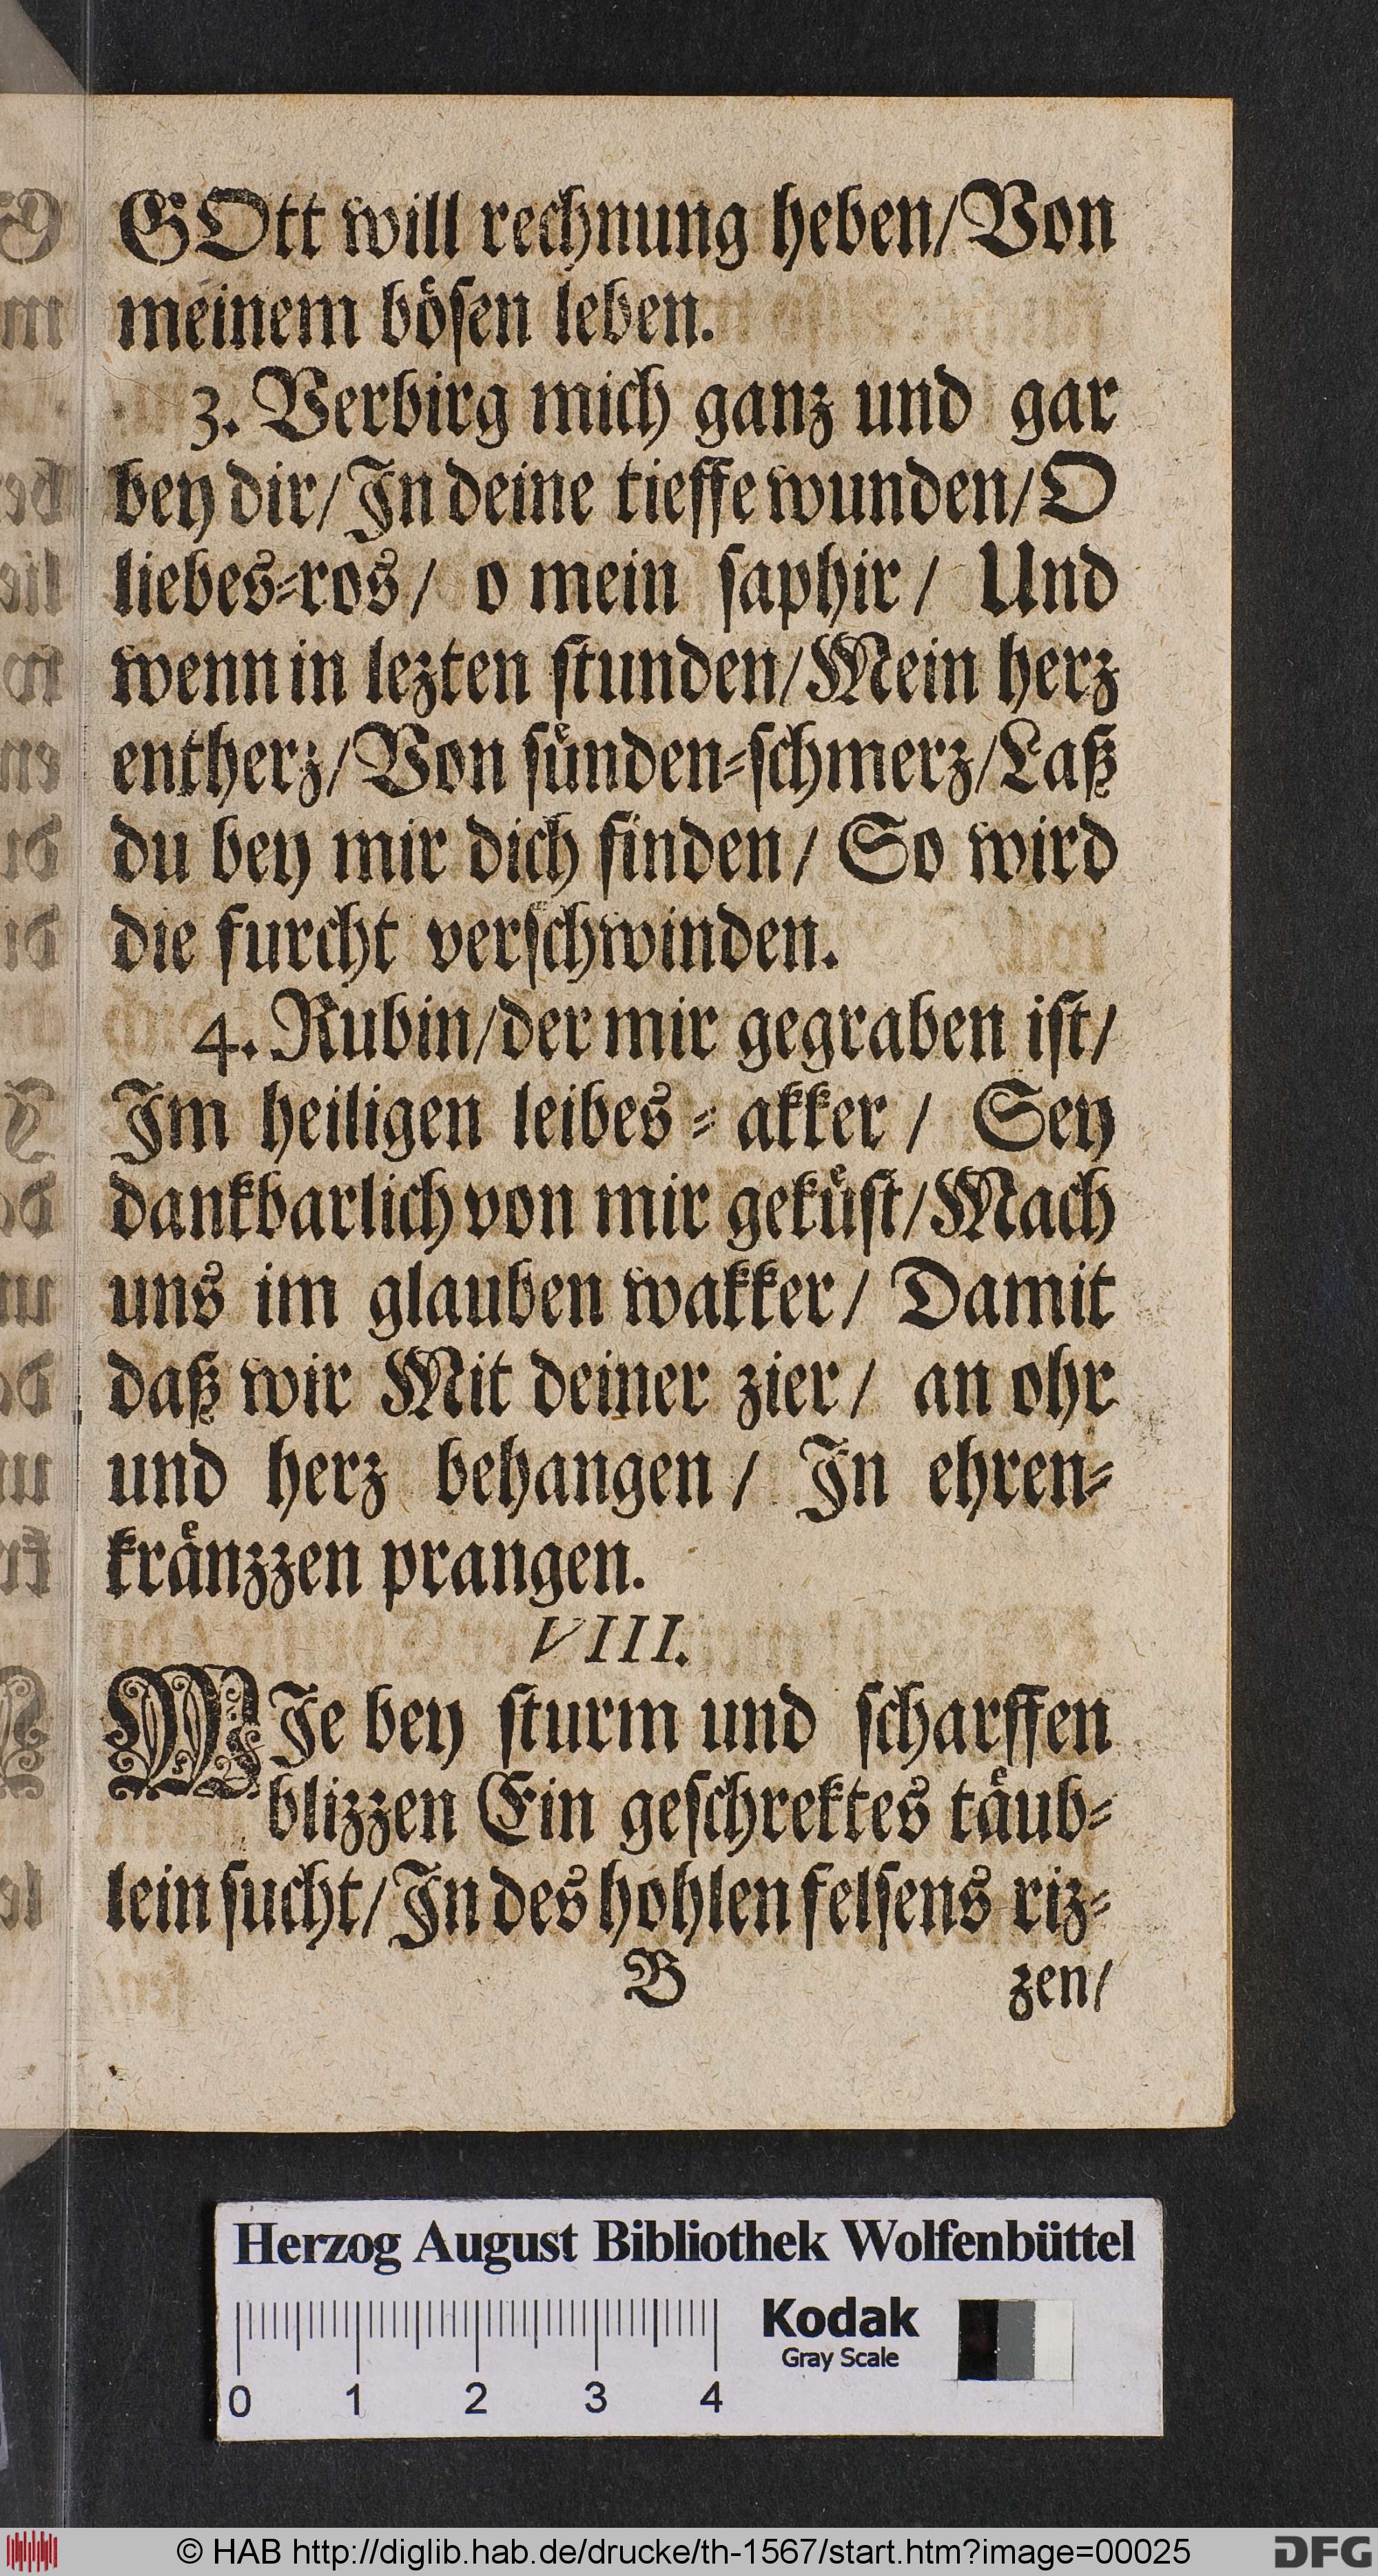 GOtt will rechnung heben/Von
meinem böſen leben.
3. Verbirg mich ganz und gar
bey dir/In deine tieffe wunden/O
liebes⸗ros/ o mein ſaphir/ Und
wenn in lezten ſtunden/Mein herz
entherz/Von ſuͤnden⸗ſchmerz/Laß
du bey mir dich finden/ So wird
die furcht verſchwinden.
4. Rubin/der mir gegraben iſt/
Im heiligen leibes⸗akker/ Sey
dankbarlich von mir gekuͤſt/Mach
uns im glauben wakker/ Damit
daß wir Mit deiner zier/ an ohr
und herz behangen/ In ehren⸗
kraͤnzzen prangen.
VIII.
WIe bey ſturm und ſcharffen
blizzen Ein geſchrektes taͤub⸗
lein ſucht/In des hohlen felſens riz⸗
B zen/
Herzog August Bibliothek Wolfenbüttel
Kodak
Gray Scale
0 1 2 3 4
© HAB http://diglib.hab.de/drucke/th-1567/start.htm?image=00025
DFG